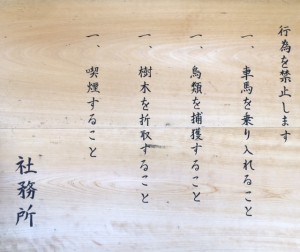 行為を禁止します
一、車馬を乗り入れること
一、鳥類を捕獲すること
一、樹木を折取すること
一、喫煙すること
社務所